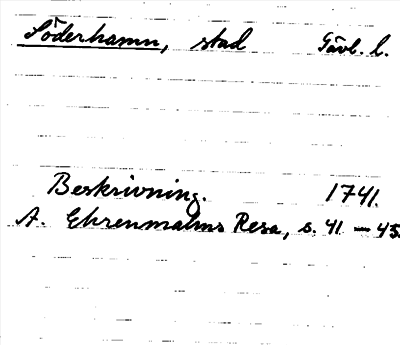 Söderhamn, stad Gävl. l.
Beskrivning. 1741.
A. Ehrenmalms Resa, s. 41 - 45.